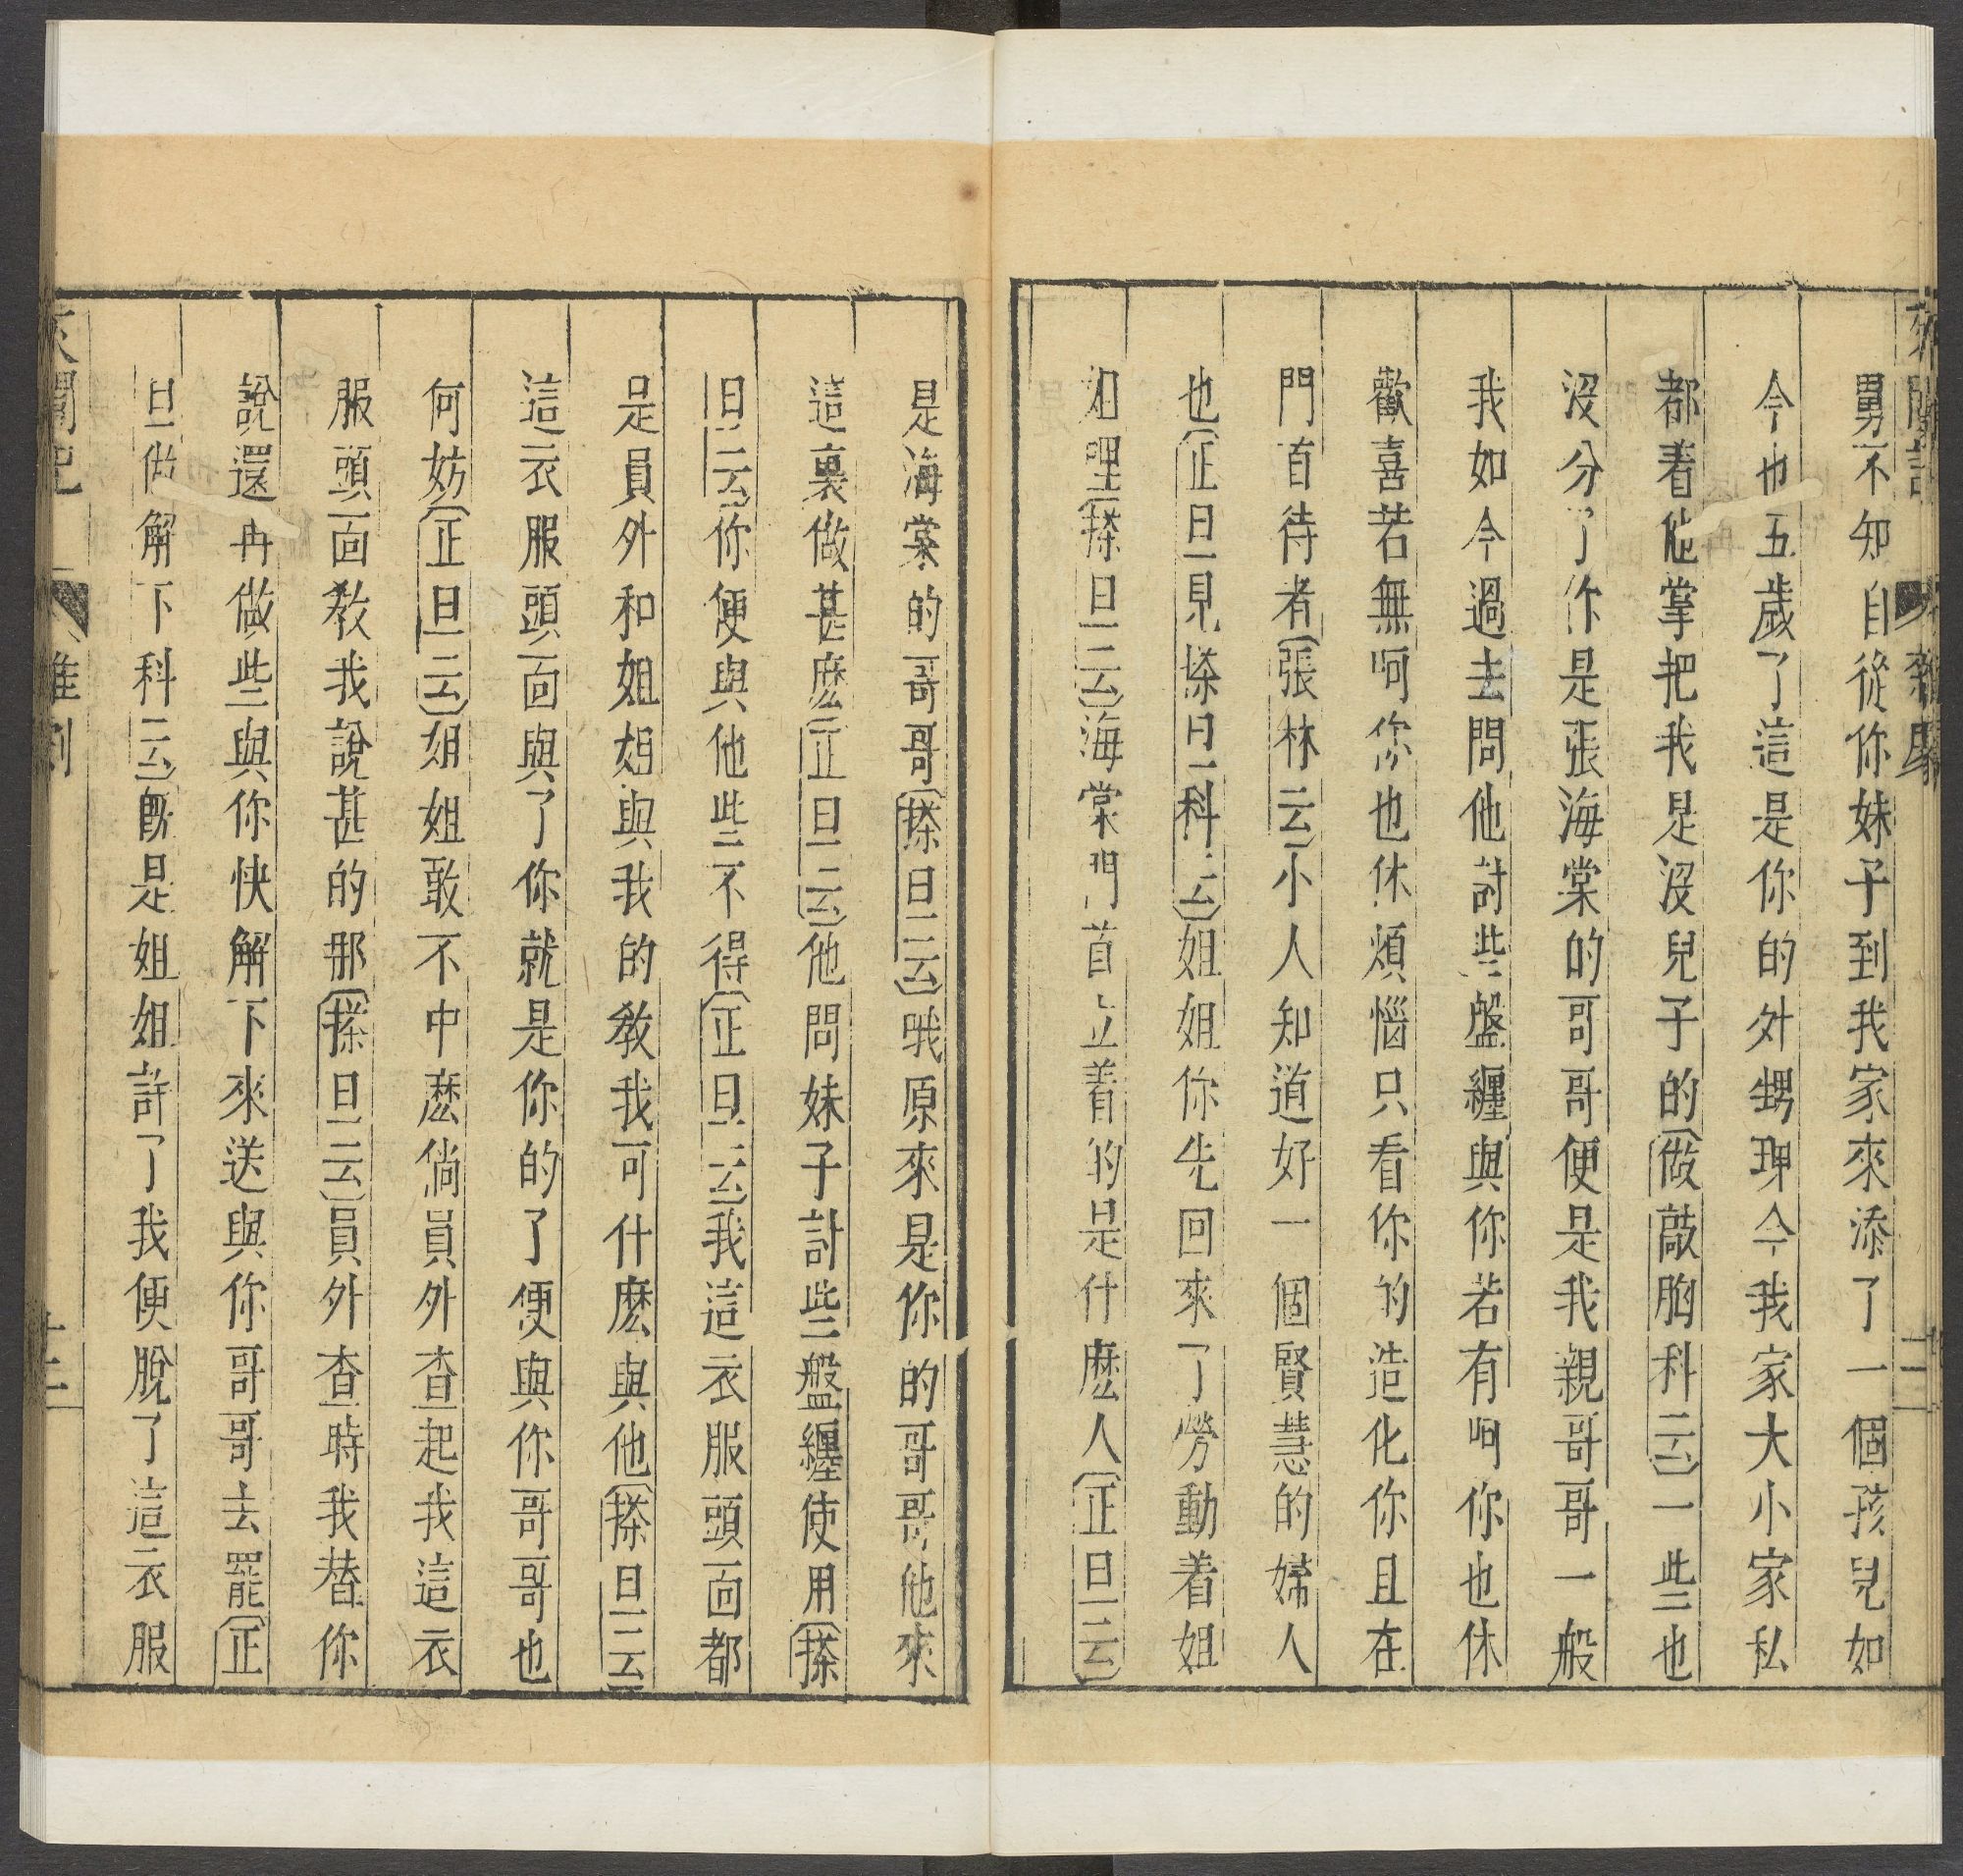 舅不知自從你妹子到我家來添了一個孩兒如
今也五歲了這是你的外甥理今我家大小家私
都着他掌把我是沒兒子的〔做敲胸科云〕一些也
沒分了你是張海棠的哥哥便是我親哥哥一般
我如今過去問他討些盤纏與你若有呵你也休
歡喜若無呵你也休煩惱只看你的造化你且在
門首待者〔張林云〕小人知道好一個賢慧的婦人
也〔正旦見搽旦科云〕姐姐你先回來了勞動着姐
姐哩〔搽旦云〕海棠門首立着的是什麽人〔正旦云〕
是海棠的哥哥〔搽旦云〕哦原來是你的哥哥他來
這裏做甚麽〔正旦云〕他問妹子討些盤纏使用〔搽
旦云〕你便與他些不得〔正旦云〕我這衣服頭面都
是員外和姐姐與我的教我可什麽與他〔搽旦云〕
這衣服頭面與了你就是你的了便與你哥哥也
何妨〔正旦云〕姐姐敢不中麽倘員外查起我這衣
服頭面教我說甚的那〔搽旦云〕員外查時我替你
說還再做些與你快解下來送與你哥哥去罷〔正
旦做解下科云〕旣是姐姐許了我便脫了這衣服